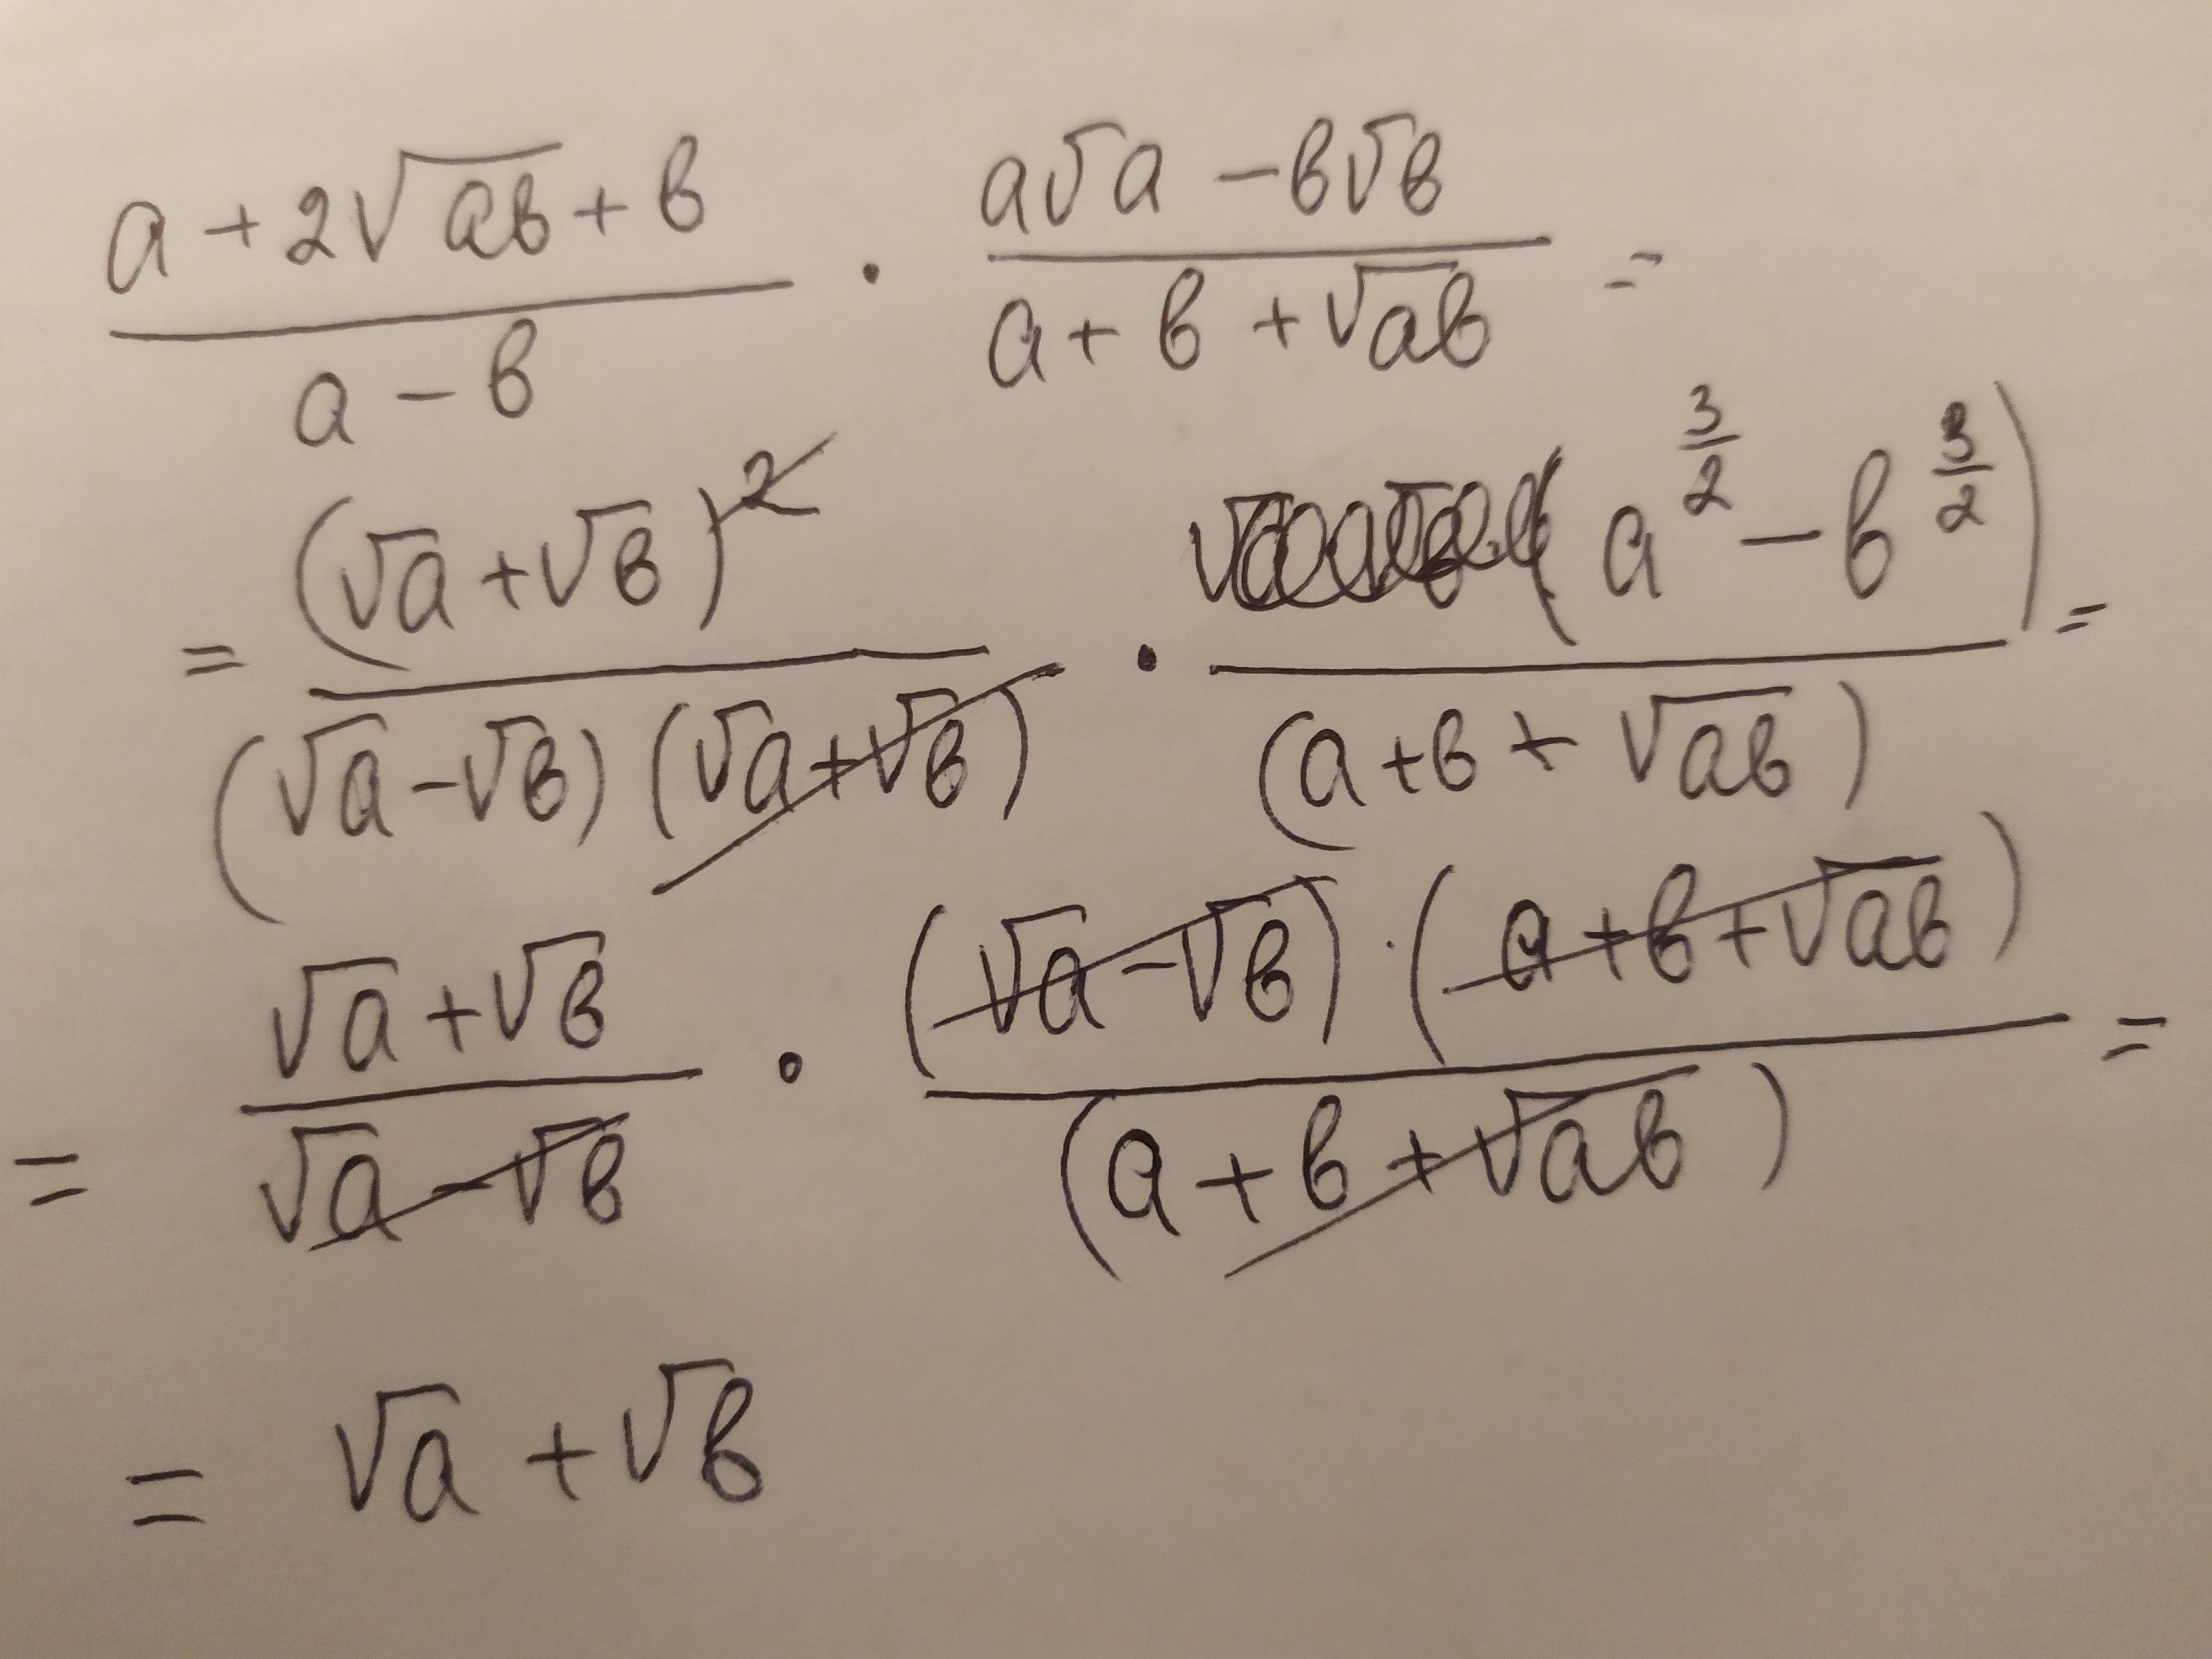 (a + 2√(ab) + b)/(a − b) · (a√a − b√b)/(a + b + √(ab)) =
= (√a + √b)²/((√a − √b)(√a + √b)) · (a^(3/2) − b^(3/2))/(a + b + √(ab)) =
= (√a + √b)/(√a − √b) · ((√a − √b) · (a + b + √(ab)))/(a + b + √(ab)) =
= √a + √b